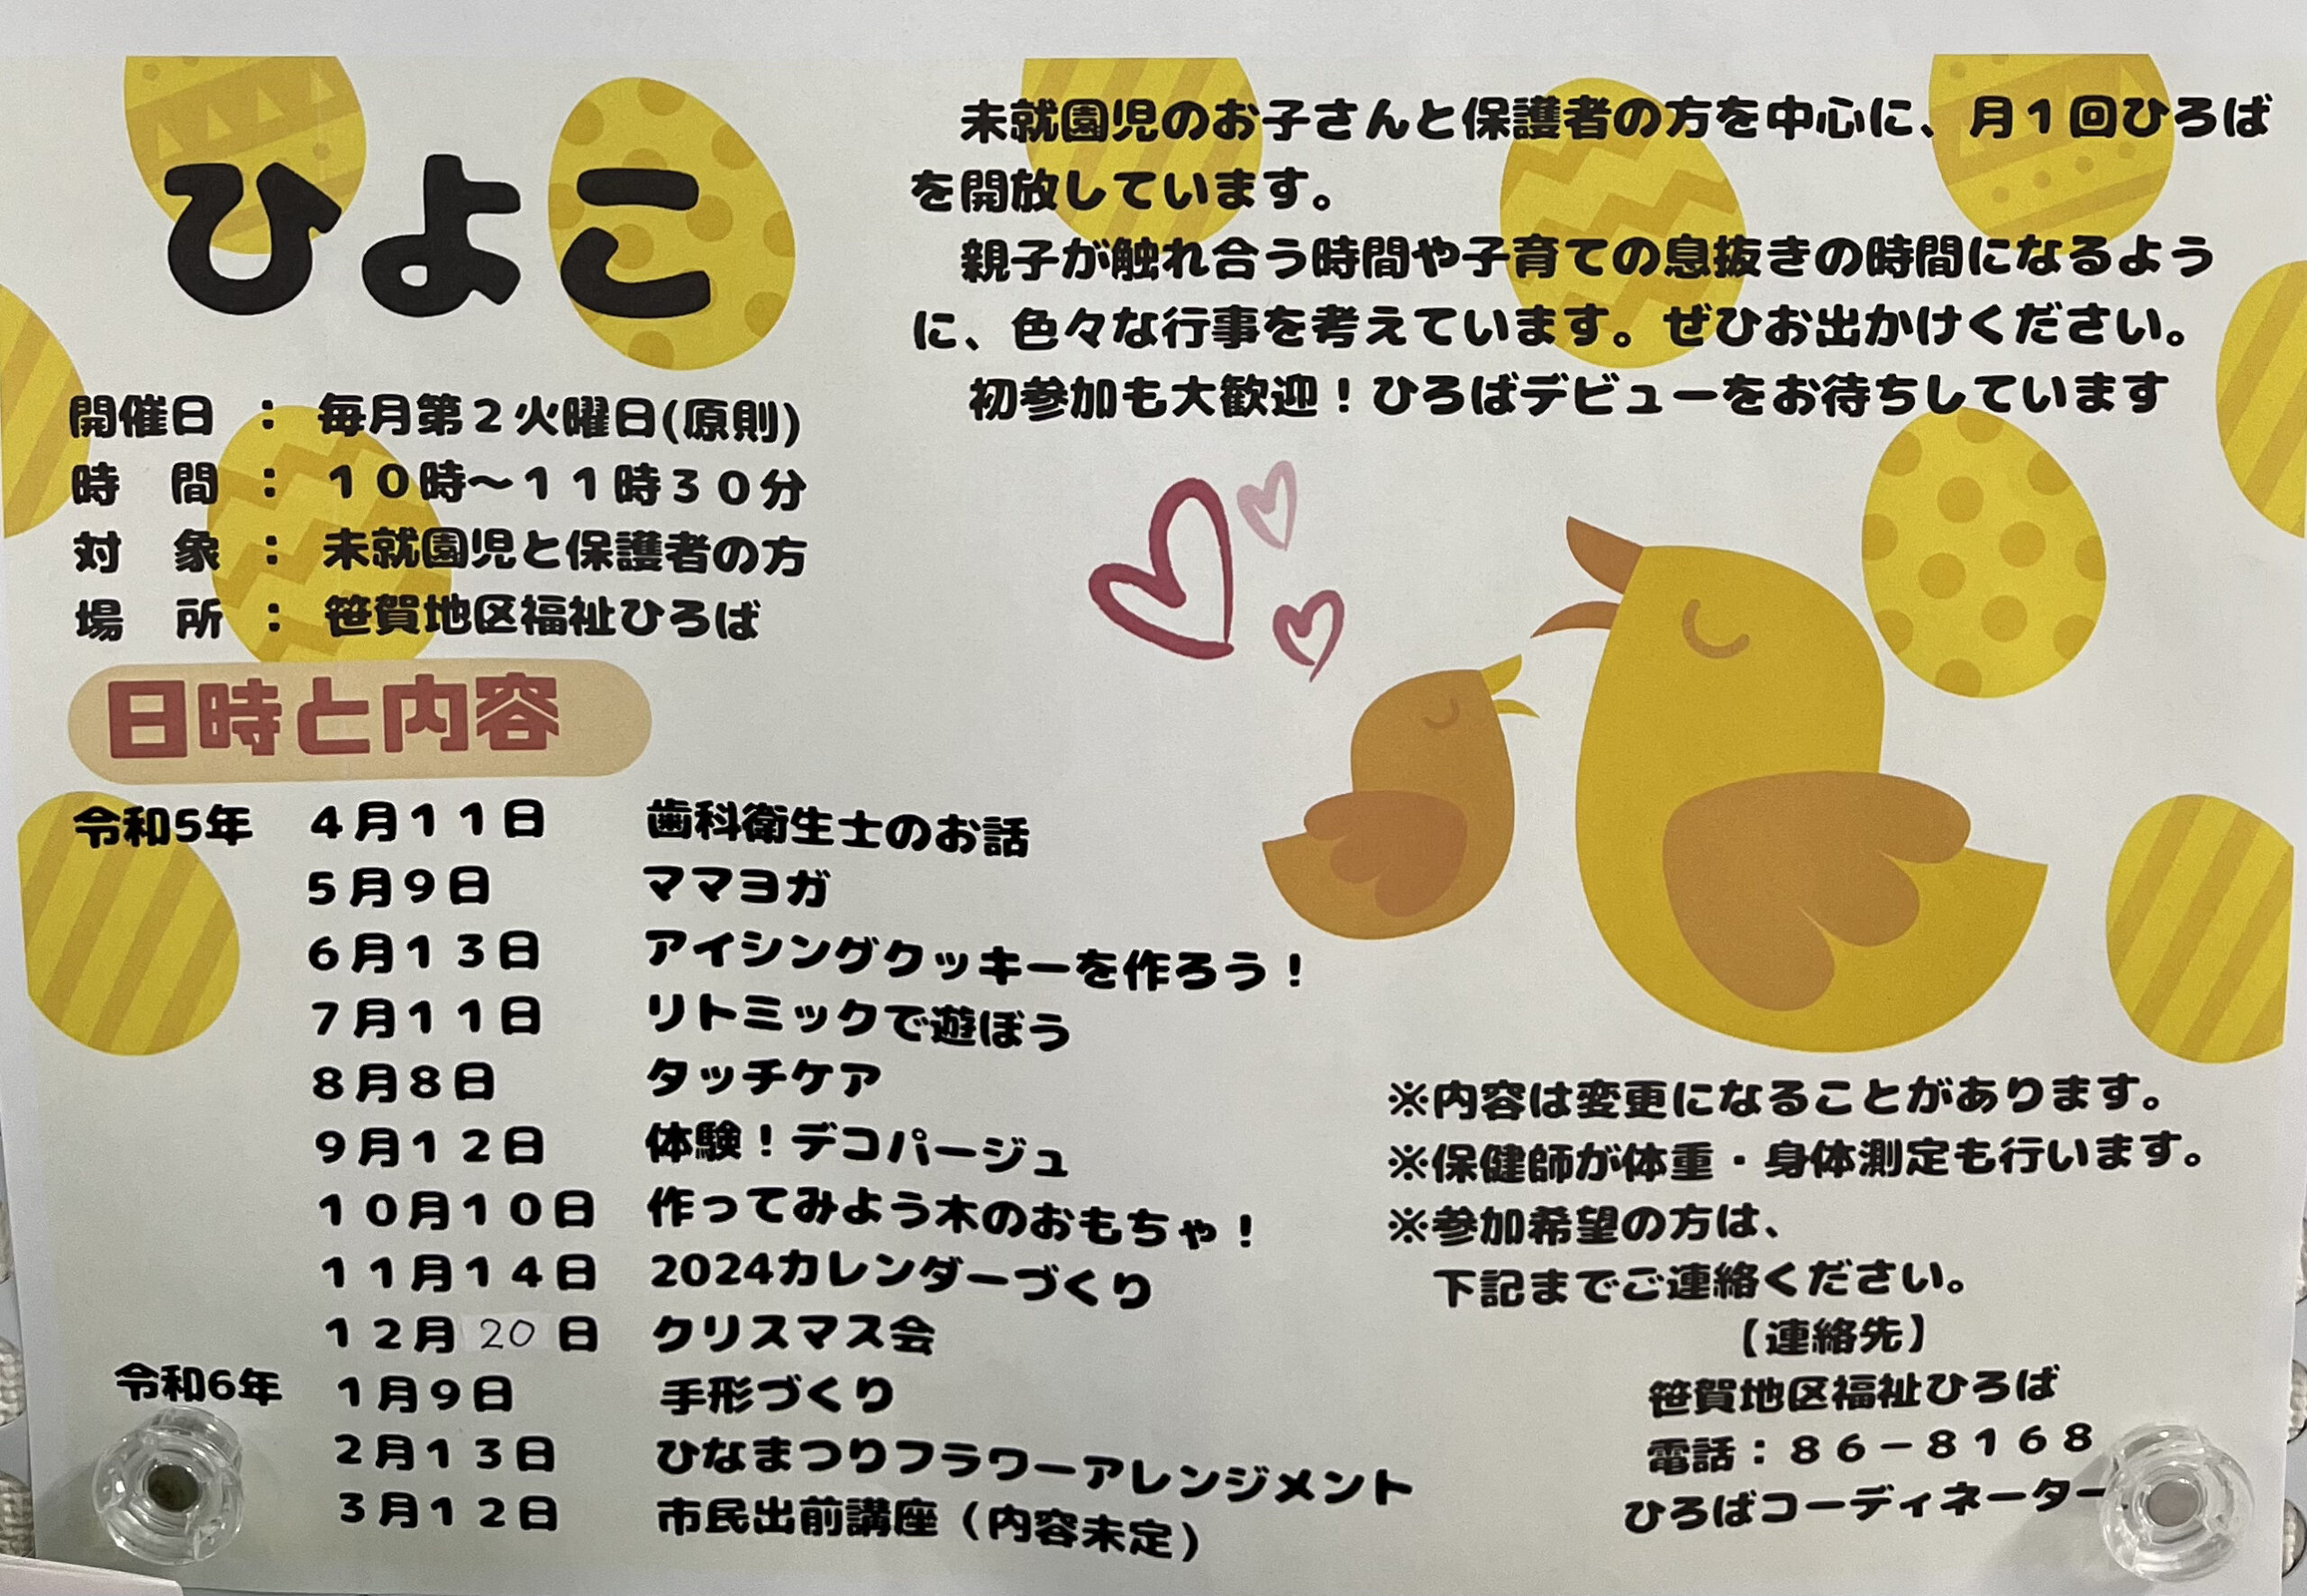 ひよこ
開催日 : 毎月第２火曜日(原則)
時　間 : １０時～１１時３０分
対　象 : 未就園児と保護者の方
場　所 : 笹賀地区福祉ひろば
未就園児のお子さんと保護者の方を中心に、月１回ひろば
を開放しています。
親子が触れ合う時間や子育ての息抜きの時間になるよう
に、色々な行事を考えています。ぜひお出かけください。
初参加も大歓迎！ひろばデビューをお待ちしています
日時と内容
令和5年 ４月１１日 歯科衛生士のお話
５月９日 ママヨガ
６月１３日 アイシングクッキーを作ろう！
７月１１日 リトミックで遊ぼう
８月８日 タッチケア
９月１２日 体験！デコパージュ
１０月１０日 作ってみよう木のおもちゃ！
１１月１４日 2024カレンダーづくり
１２月20日 クリスマス会
令和6年 １月９日 手形づくり
２月１３日 ひなまつりフラワーアレンジメント
３月１２日 市民出前講座（内容未定）
※内容は変更になることがあります。
※保健師が体重・身体測定も行います。
※参加希望の方は、
下記までご連絡ください。
【連絡先】
笹賀地区福祉ひろば
電話：８６－８１６８
ひろばコーディネーター